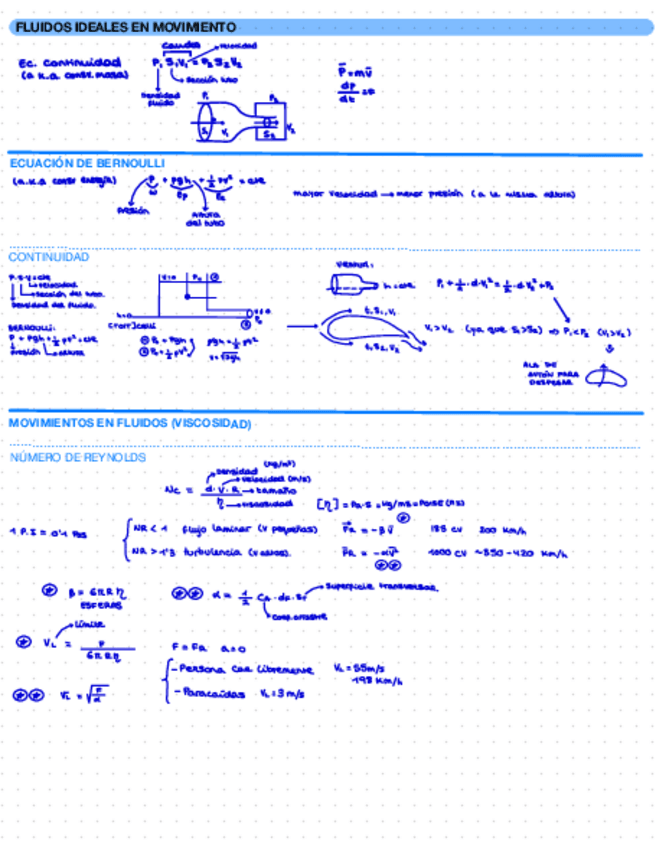 FLUIDOS IDEALES EN MOVIMIENTO
Ec. Continuidad
(a.k.a consv. masa)
Caudal
velocidad
P₁ S₁V₁ = P₂ S₂ V₂
Sección tubo
Densidad
fluido
P₁
P₂
S₁
V₁
S₂
V₂
P⃗ = mv⃗
dp
dt
ECUACIÓN DE BERNOULLI
(a.k.a consv energía)
P + ρgh + ½ ρv² = cte
Ep
Presión
Altura
del tubo
mayor velocidad → menor presión (a la misma altura)
CONTINUIDAD
velocidad
sección del tubo.
densidad del fluido.
BERNOULLI:
P + ρgh + ½ρv² = cte
Presión
altura
h=0
V=0
(Torricelli)
Venturi:
h = cte
P₁ + ½·d·V₁² = ½·d·V₂² + P₂
t, S₁, V₁
t, S₂, V₂
V₁ > V₂ (ya que S₁>S₂) ⇒ P₁<P₂ (V₁>V₂)
ALA DE
AVIÓN PARA
DESPEGAR
MOVIMIENTOS EN FLUIDOS (VISCOSIDAD)
NÚMERO DE REYNOLDS
densidad (kg/m³)
velocidad (m/s)
d · V · R → tamaño
η → viscosidad
[η] = Pa·s = kg/ms = Poise
NR < 1 flujo laminar (v pequeñas)
Fa = -βv⃗
185 cv 200 km/h
NR > 1'3 turbulencia
1000 cv ~350-420 km/h
β = 6πRη
ESFERAS
α = ½ Ca · df · St
Superficie transversal
coef. arrastre
Límite
V_L = F
6πRη
F = Fa a=0
- Persona cae libremente V_L = 55 m/s
198 km/h
- Paracaídas V_L = 3 m/s
V_L = √F/α